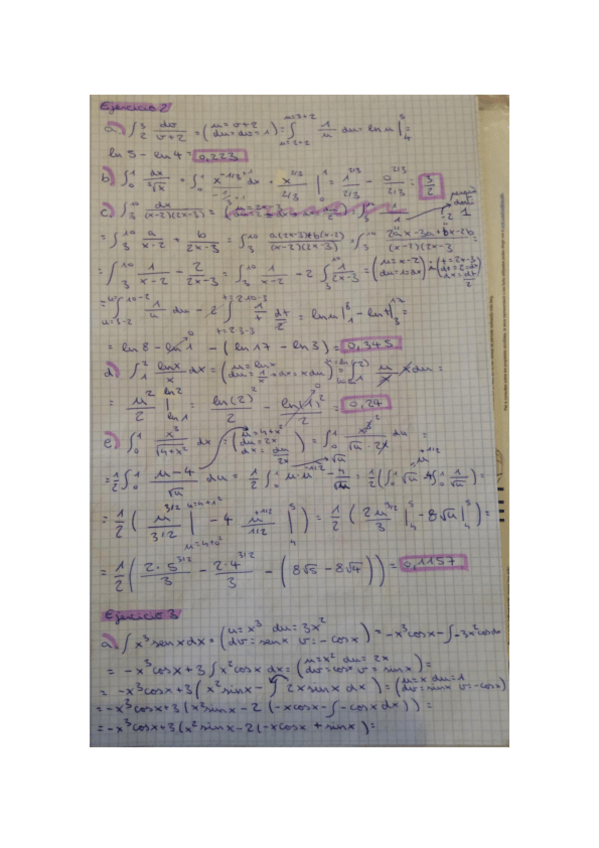 Ejercicio 2
a) ∫₂³ dv/(v+2) = (u = v+2, du = dv = 1) = ∫_{u=2+2}^{u=3+2} 1/u du = ln u |₄⁵ =
ln 5 - ln 4 = 0,223
b) ∫₀¹ dx/∛x = ∫₀¹ x^(-1/3+1)/(-1/3+1) dx = x^(2/3)/(2/3) |₀¹ = 1^(2/3)/(2/3) - 0^(2/3)/(2/3) = 3/2
c) ∫₃¹⁰ dx/((x-2)(2x-3)) =
= ∫₃¹⁰ a/(x-2) + b/(2x-3) = ∫₃¹⁰ (a(2x-3)+b(x-2))/((x-2)(2x-3)) = ∫₃¹⁰ (2ax-3a+bx-2b)/((x-2)(2x-3)) =
= ∫₃¹⁰ 1/(x-2) - 2/(2x-3) = ∫₃¹⁰ 1/(x-2) - 2 ∫₃¹⁰ 1/(2x-3) = (u = x-2, du = 1dx) (t = 2x-3, dt = 2dx, dx = dt/2)
= ∫_{u=3-2}^{u=10-2} 1/u du - 2 ∫_{t=2·3-3}^{t=2·10-3} 1/t dt/2 = ln u |₁⁸ - ln t |₃¹⁷ =
= ln 8 - ln 1 - (ln 17 - ln 3) = 0,345
d) ∫₁² lnx/x dx = (u = lnx, du = 1/x · dx = x du) = ∫ u/x x du =
= u²/2 |_{ln 1}^{ln 2} = ln(2)²/2 - ln(1)²/2 = 0,24
e) ∫₀¹ x³/√(4+x²) dx = (u = 4+x², du = 2x, dx = du/2x) = ∫₀¹ x³/(√u · 2x) du =
= 1/2 ∫₀¹ (u-4)/√u du = 1/2 ∫₀¹ u·u^(-1/2) - 4/√u = 1/2 (∫₀¹ √u - 4∫₀¹ 1/√u) =
= 1/2 (u^(3/2)/(3/2) |_{u=4+0²}^{u=4+1²} - 4 u^(1/2)/(1/2) |₄⁵) = 1/2 (2u^(3/2)/3 |₄⁵ - 8√u |₄⁵) =
= 1/2 (2·5^(3/2)/3 - 2·4^(3/2)/3 - (8√5 - 8√4)) = 0,1157
Ejercicio 3
a) ∫ x³ senx dx = (u = x³ du = 3x², dv = senx v = -cosx) = -x³cosx - ∫ -3x²cosx
= -x³cosx + 3 ∫ x²cosx dx = (u = x² du = 2x, dv = cosx v = sinx) =
= -x³cosx + 3 (x²sinx - ∫ 2x sinx dx) = (u = x du = 1, dv = sinx v = -cosx)
= -x³cosx + 3 (x²sinx - 2 (-xcosx - ∫ -cosx dx)) =
= -x³cosx + 3 (x²sinx - 2 (-xcosx + sinx) =